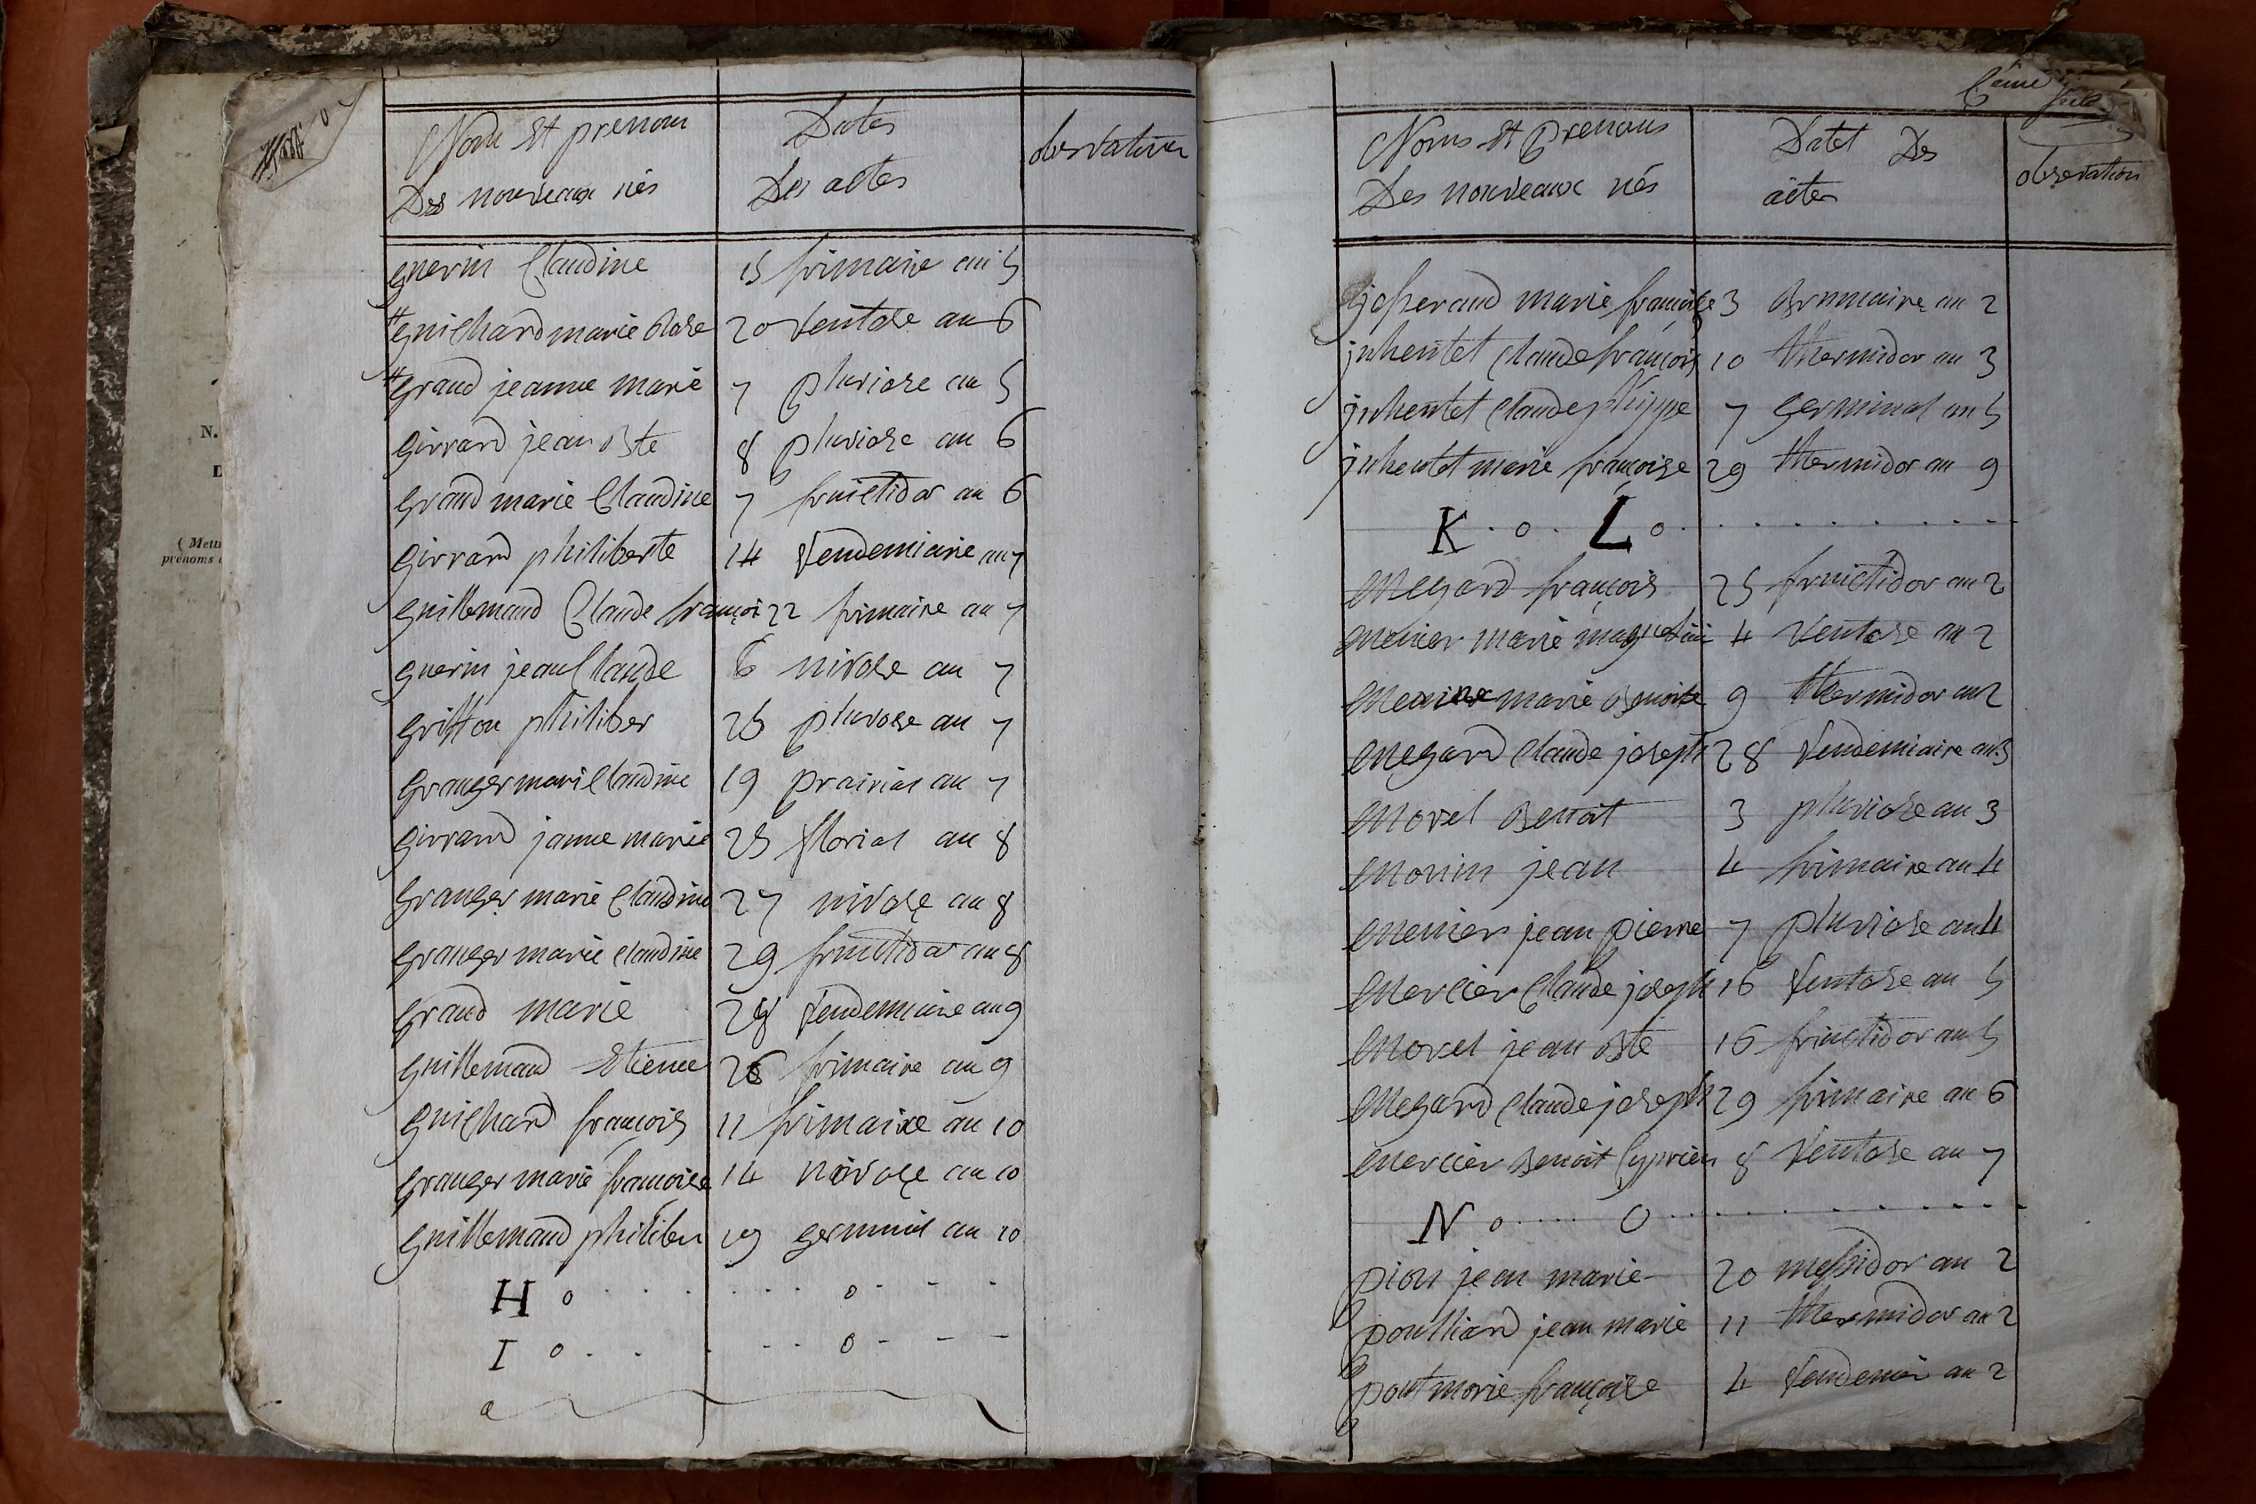 Nom Et prenom
Des nouveaux nés
Dates
Des actes
observation
guerin Claudine 15 frimaire an 5
guichard marie Rose 20 Ventose an 6
grand jeanne marie 7 pluviose an 5
girrard jean Bte 8 pluviose an 6
grand marie Claudine 7 fruictidor an 6
girrard philiberte 14 Vendemiaire an 7
guillemaud Claude françoi 22 frimaire an 7
guerin jean Claude 6 nivose an 7
griffon philiber 26 pluvose an 7
granger mari Claudine 19 prairial an 7
girrard janne marie 25 florial an 8
granger marie Claudine 27 nivose an 8
granger marie Claudine 29 fructidor an 8
grand marie 28 Vendemiaire an 9
guillemaud Etienne 26 frimaire an 9
guichard françois 11 frimaire an 10
granger marie françoise 14 nivose an 10
guillemaud philiber 19 germinal an 10
H o o
I o o
N.
D
( Mett
prénoms
Noms Et prenoms
Des nouveaux nés
Datet Des
actes
observation
josserand marie françoise 3 Brumaire an 2
juhentet Claude françois 10 thermidor an 3
juhentet Claude phippe 7 germinal an 5
juhentet marie françoise 29 thermidor an 9
K o L o
Megard françois 25 fruictidor an 2
Menier marie 4 Ventose an 2
marie Benoite 9 thermidor an 2
Megard Claude joseph 28 Vendemiaire an 3
Morel Benoit 3 pluviose an 3
Morin jean 4 frimaire an 4
Menier jean pierre 7 pluviose an 4
Mercier Claude joseph 16 Ventose an 5
Morel jean Bte 16 fructidor an 5
Megard Claude joseph 29 frimaire an 6
Mercier Benoit Cyprien 8 Ventose an 7
N o O
pion jean marie 20 messidor an 2
poulliard jean marie 11 thermidor an 2
pont marie françoise 4 Vendemier an 2